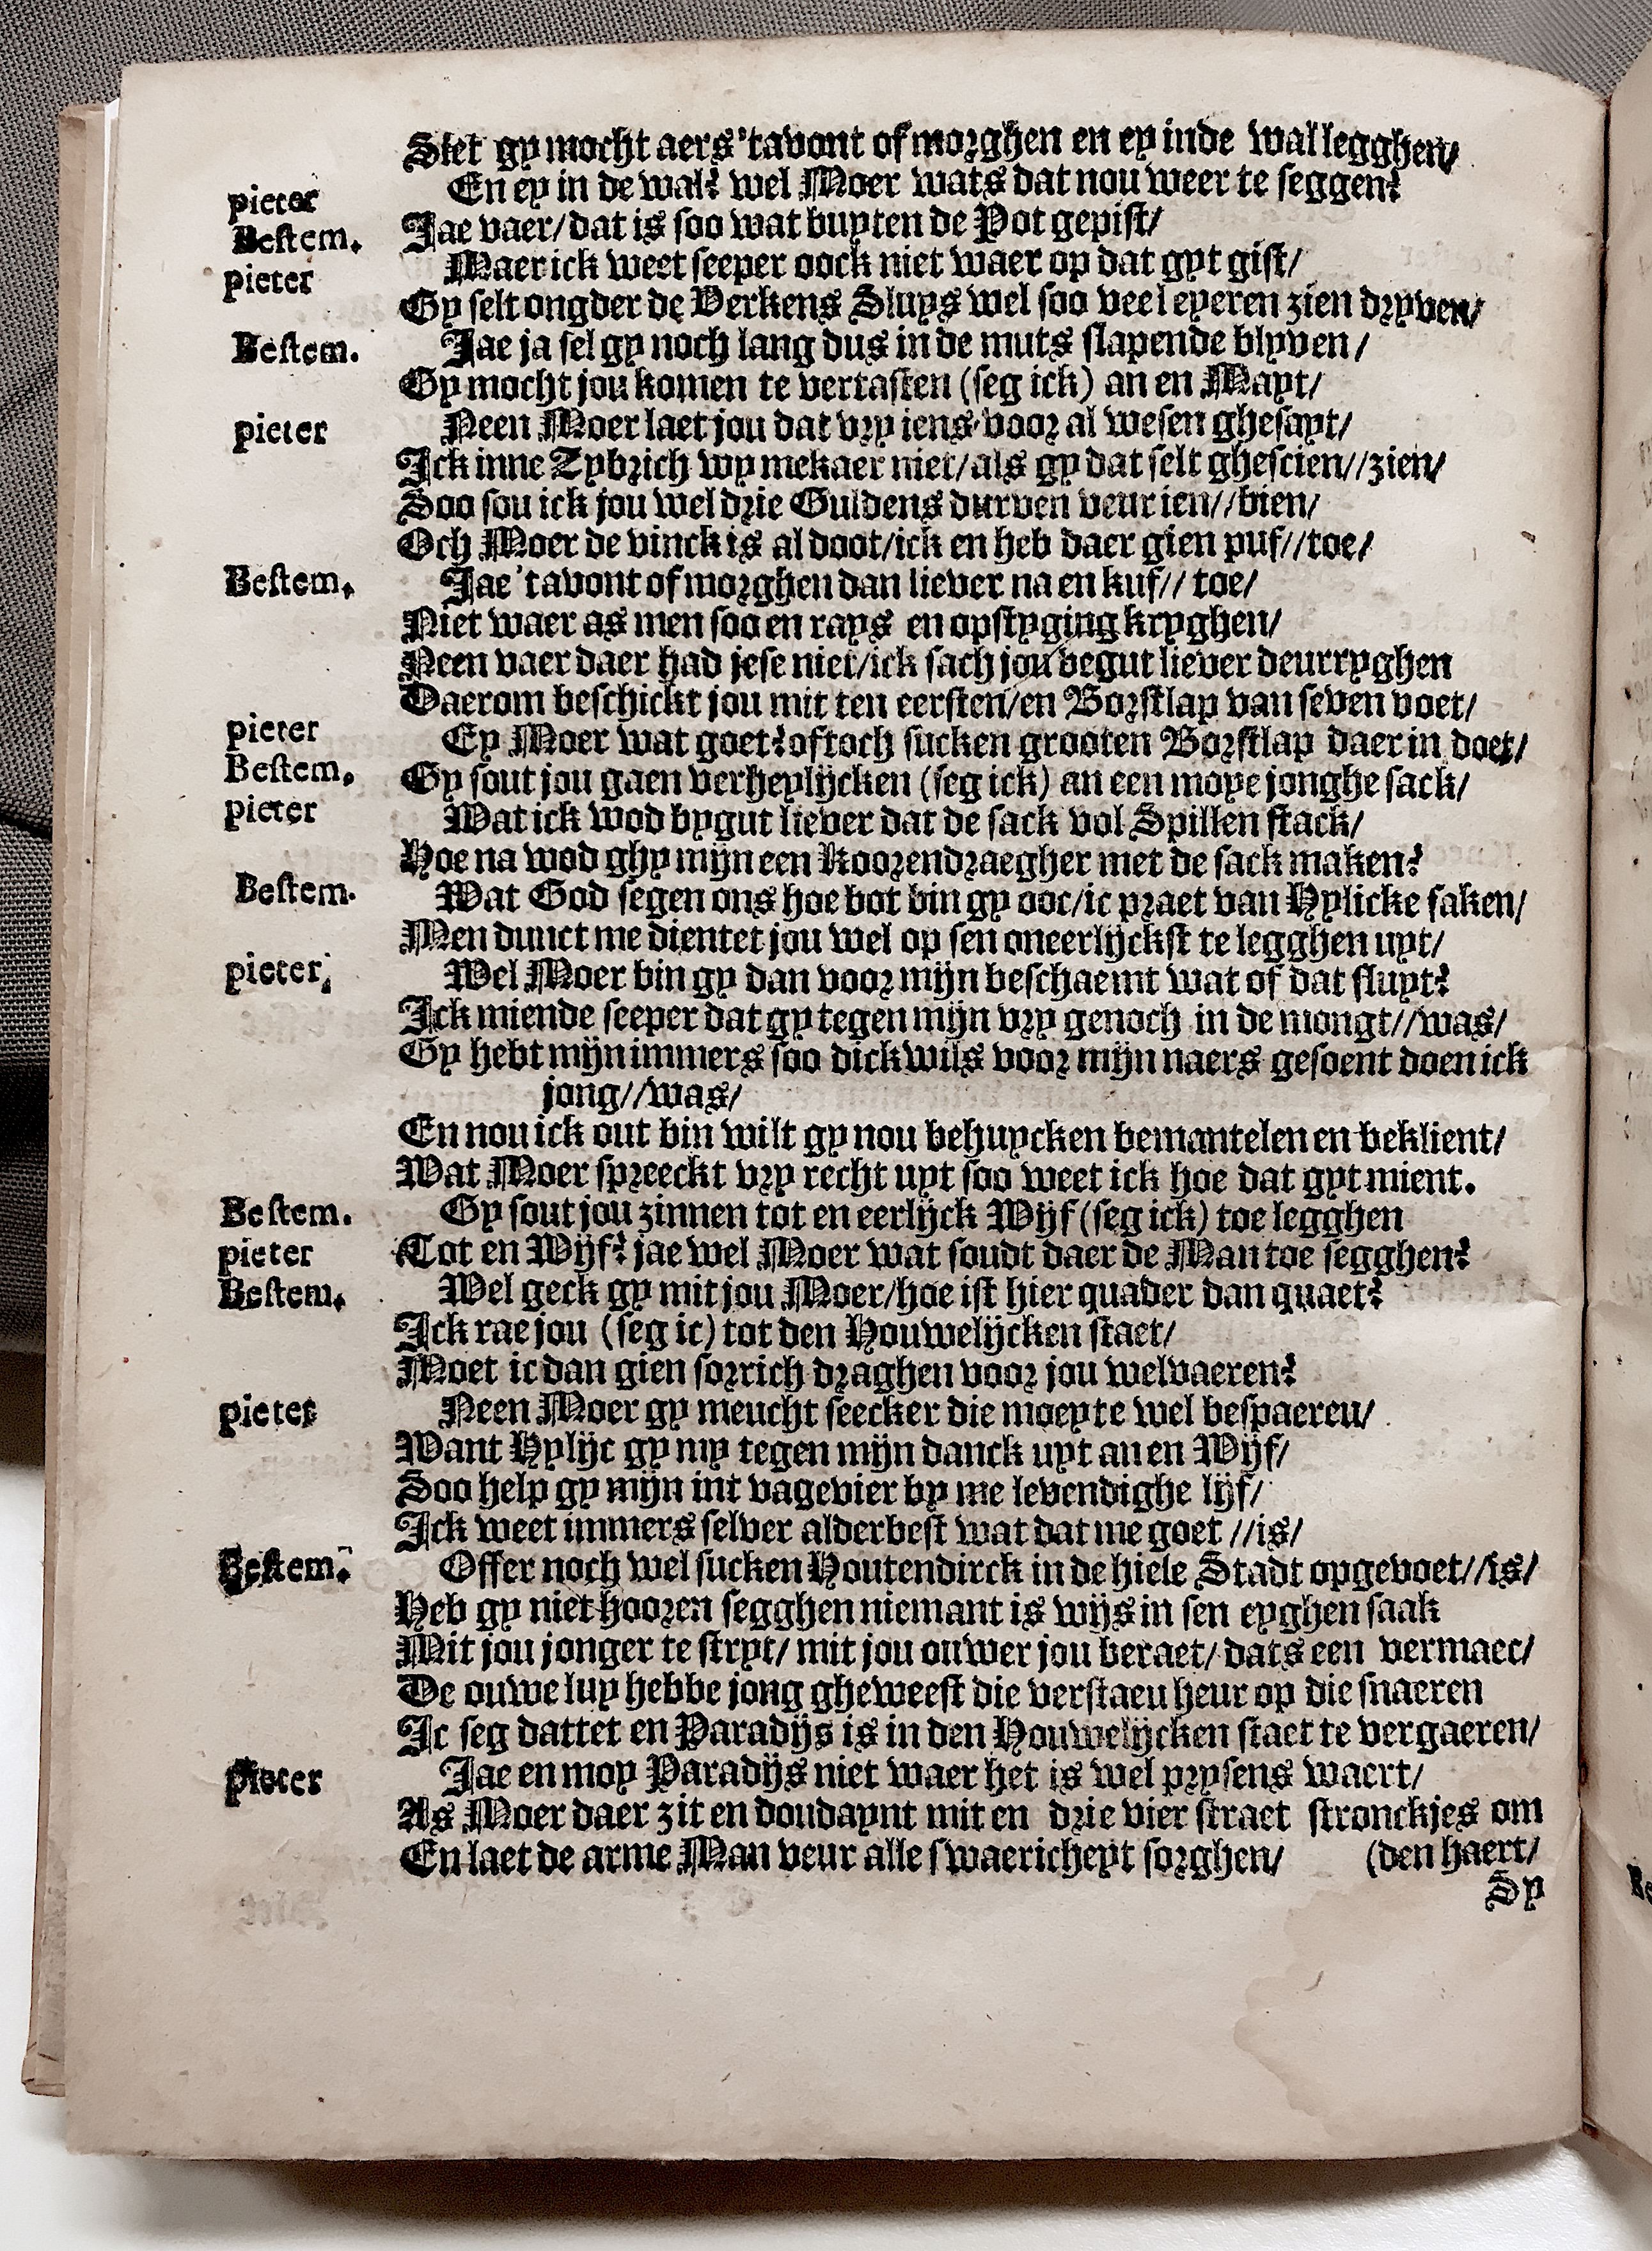 Siet gy mocht aers 'tavont of morghen en ey inde wal legghen/
pieter En ey in de wal? wel Moer wats dat nou weer te seggen?
Bestem. Jae vaer/ dat is soo wat buyten de Pot gepist/
pieter Maer ick weet seeper oock niet waer op dat gyt gist/
Gy selt ongder de Verkens Sluys wel soo veel eyeren zien dryven/
Bestem. Jae ja sel gy noch lang dus in de muts slapende blyven/
Gy mocht jou komen te vertasten (seg ick) an en Mayt/
pieter Neen Moer laet jou dat vry iens voor al wesen ghesayt/
Ick inne Tybrich wy mekaer niet/ als gy dat selt ghescien//zien/
Soo sou ick jou wel drie Guldens durven veur ien//bien/
Och Moer de vinck is al doot/ick en heb daer gien puf//toe/
Bestem. Jae 'tavont of morghen dan liever na en kuf// toe/
Niet waer as men soo en rays en opstyging kryghen/
Neen vaer daer had jese niet/ick sach jou begut liever deurryghen
Daerom beschickt jou mit ten eersten/en Borstlap van seven voet/
pieter Ey Moer wat goet? of toch sucken grooten Borstlap daer in doet/
Bestem. Gy sout jou gaen verheylijcken (seg ick) an een moye jonghe sack/
pieter Wat ick wod bygut liever dat de sack vol Spillen stack/
Hoe na wod ghy mijn een Koorendraegher met de sack maken?
Bestem. Wat God segen ons hoe bot bin gy ooc/ic praet van Hylicke saken/
Men dunct me dientet jou wel op sen oneerlijckst te legghen uyt/
pieter, Wel Moer bin gy dan voor mijn beschaemt wat of dat sluyt?
Ick miende seeper dat gy tegen mijn vry genoch in de mongt//was/
Gy hebt mijn immers soo dickwils voor mijn naers gesoent doen ick
jong//was/
En nou ick out bin wilt gy nou behuycken bemantelen en beklient/
Wat Moer spreeckt vry recht uyt soo weet ick hoe dat gyt mient.
Bestem. Gy sout jou zinnen tot en eerlijck Wijf (seg ick) toe legghen
pieter Tot en Wijf? jae wel Moer wat soudt daer de Man toe segghen?
Bestem. Wel geck gy mit jou Moer/hoe ist hier quader dan quaet?
Ick rae jou (seg ic) tot den Houwelijcken staet/
Moet ic dan gien sorrich draghen voor jou welvaeren?
pieter Neen Moer gy meucht seecker die moeyte wel bespaeren/
Want Hylijc gy my tegen mijn danck uyt an en Wijf/
Soo help gy mijn int vagevier by me levendighe lijf/
Ick weet immers selver alderbest wat dat me goet //is/
Bestem. Offer noch wel sucken Houtendirck in de hiele Stadt opgevoet//is/
Heb gy niet hooren segghen niemant is wijs in sen eyghen saak
Mit jou jonger te stryt/ mit jou ouwer jou beraet/ dats een vermaec/
De ouwe luy hebbe jong gheweest die verstaeu heur op die snaeren
Ic seg dattet en Paradijs is in den Houwelijcken staet te vergaeren/
pieter Jae en moy Paradijs niet waer het is wel prysens waert/
As Moer daer zit en doudaynt mit en drie vier straet stronckjes om
En laet de arme Man veur alle swaericheyt sorghen/ (den haert/
Sy